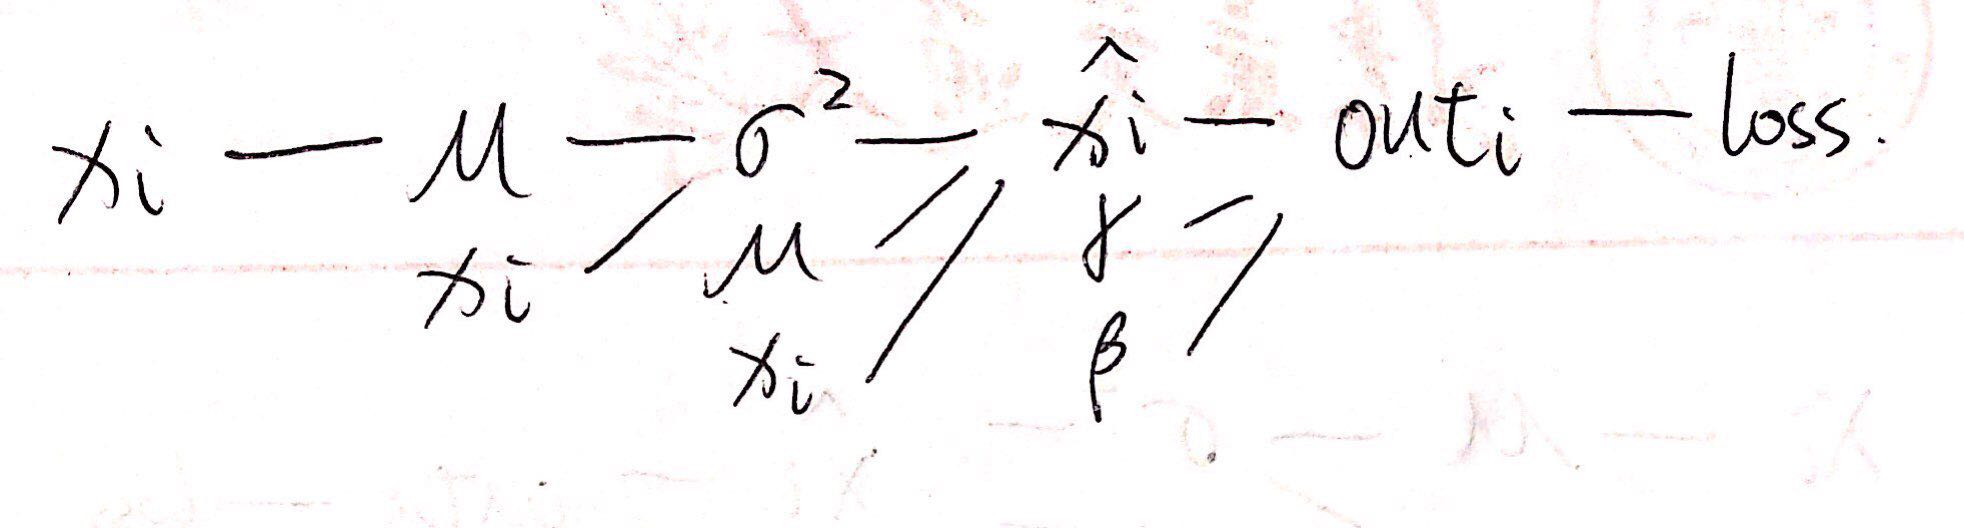 xi — μ — σ² — x̂i — outi — loss.
xi μ γ
xi β